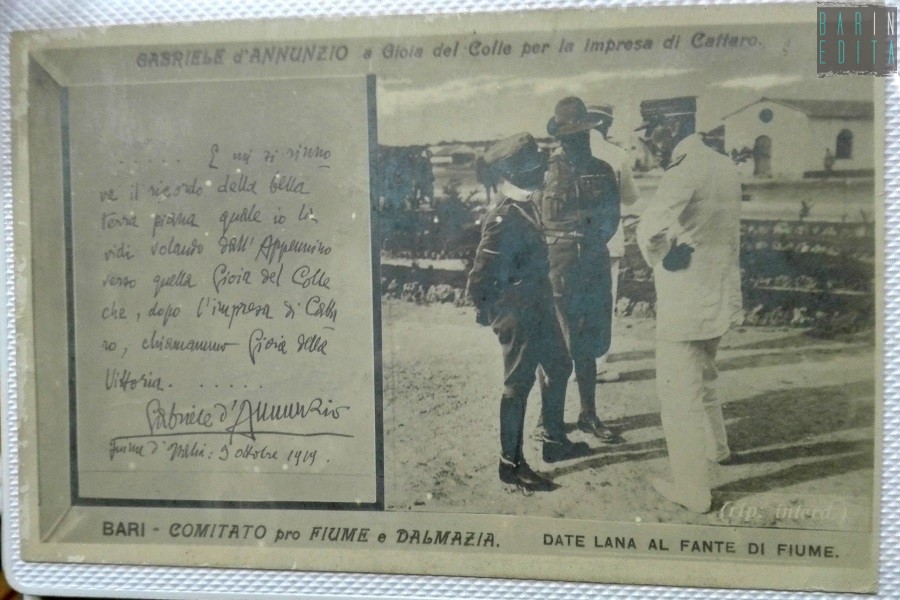 BARIN
EDITA
GABRIELE d'ANNUNZIO a Gioia del Colle per la impresa di Cattaro.
. . . . . . E mi si rinno
va il ricordo della bella
terra piana quale io la
vidi volando dall' Appennino
verso quella Gioia del Colle
che, dopo l'impresa di Catta
ro, chiamammo Gioia della
Vittoria. . . . . .
Gabriele d'Annunzio
Fiume d'Italia: 9 ottobre 1919.
(rip. interd.)
BARI - COMITATO pro FIUME e DALMAZIA. DATE LANA AL FANTE DI FIUME.